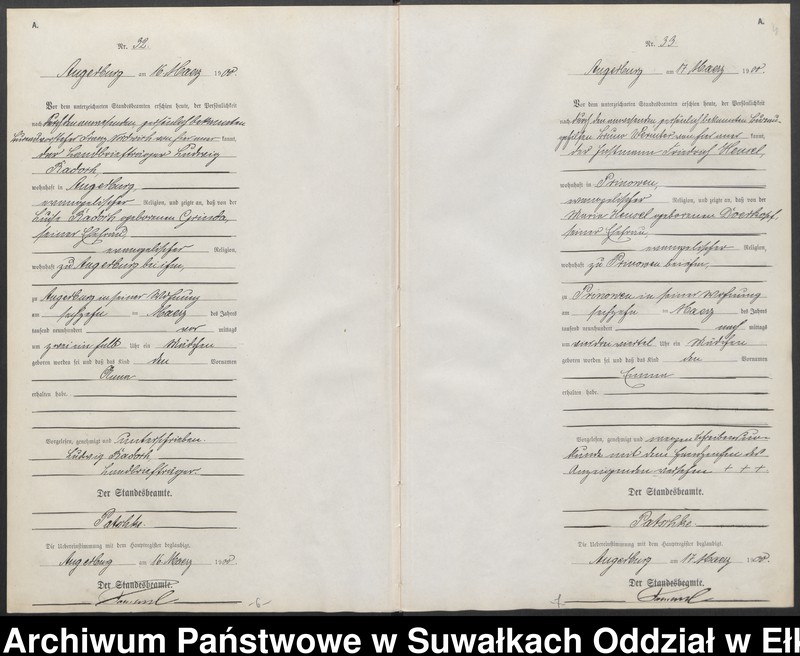 A.
Nr. 32.
Angerburg am 16 Maerz 1900.
Vor dem unterzeichneten Standesbeamten erschien heute, der Persönlichkeit
nach durch den anwesenden, persönlich bekannten
Franz kannt,
der Landbriefträger Ludwig
Radoth,
wohnhaft in Angerburg,
evangelischer Religion, und zeigte an, daß von der
Luise Radoth geborenen
seiner Ehefrau,
evangelischer Religion,
wohnhaft zu Angerburg bei ihm,
zu Angerburg in seiner Wohnung
am sechzehn ten Maerz des Jahres
tausend neunhundert vor mittags
um zwei ein halb Uhr ein Mädchen
geboren worden sei und daß das Kind den Vornamen
Anna
erhalten habe.
Vorgelesen, genehmigt und unterschrieben.
Ludwig Radoth,
Landbriefträger.
Der Standesbeamte.
Patschke.
Die Uebereinstimmung mit dem Hauptregister beglaubigt.
Angerburg am 16 Maerz 1900
Der Standesbeamte.
-6-
A.
Nr. 33.
Angerburg am 17 Maerz 1900.
Vor dem unterzeichneten Standesbeamten erschien heute, der Persönlichkeit
nach durch den anwesenden, persönlich bekannten
von hier kannt,
der Instmann Friedrich Hensel,
wohnhaft in Prinowen,
evangelischer Religion, und zeigte an, daß von der
Maria Hensel geborenen
seiner Ehefrau,
evangelischer Religion,
wohnhaft zu Prinowen bei ihm,
in Prinowen in seiner Wohnung
am sechzehn ten Maerz des Jahres
tausend neunhundert nach mittags
um Uhr ein Mädchen
geboren worden sei und daß das Kind den Vornamen
Emma
erhalten habe.
Vorgelesen, genehmigt und wegen Schreibensun-
kunde mit dem Handzeichen des
Anzeigenden versehen + + +
Der Standesbeamte.
Patschke.
Die Uebereinstimmung mit dem Hauptregister beglaubigt.
Angerburg am 17 Maerz 1900.
Der Standesbeamte.
Archiwum Państwowe w Suwałkach Oddział w Ełk